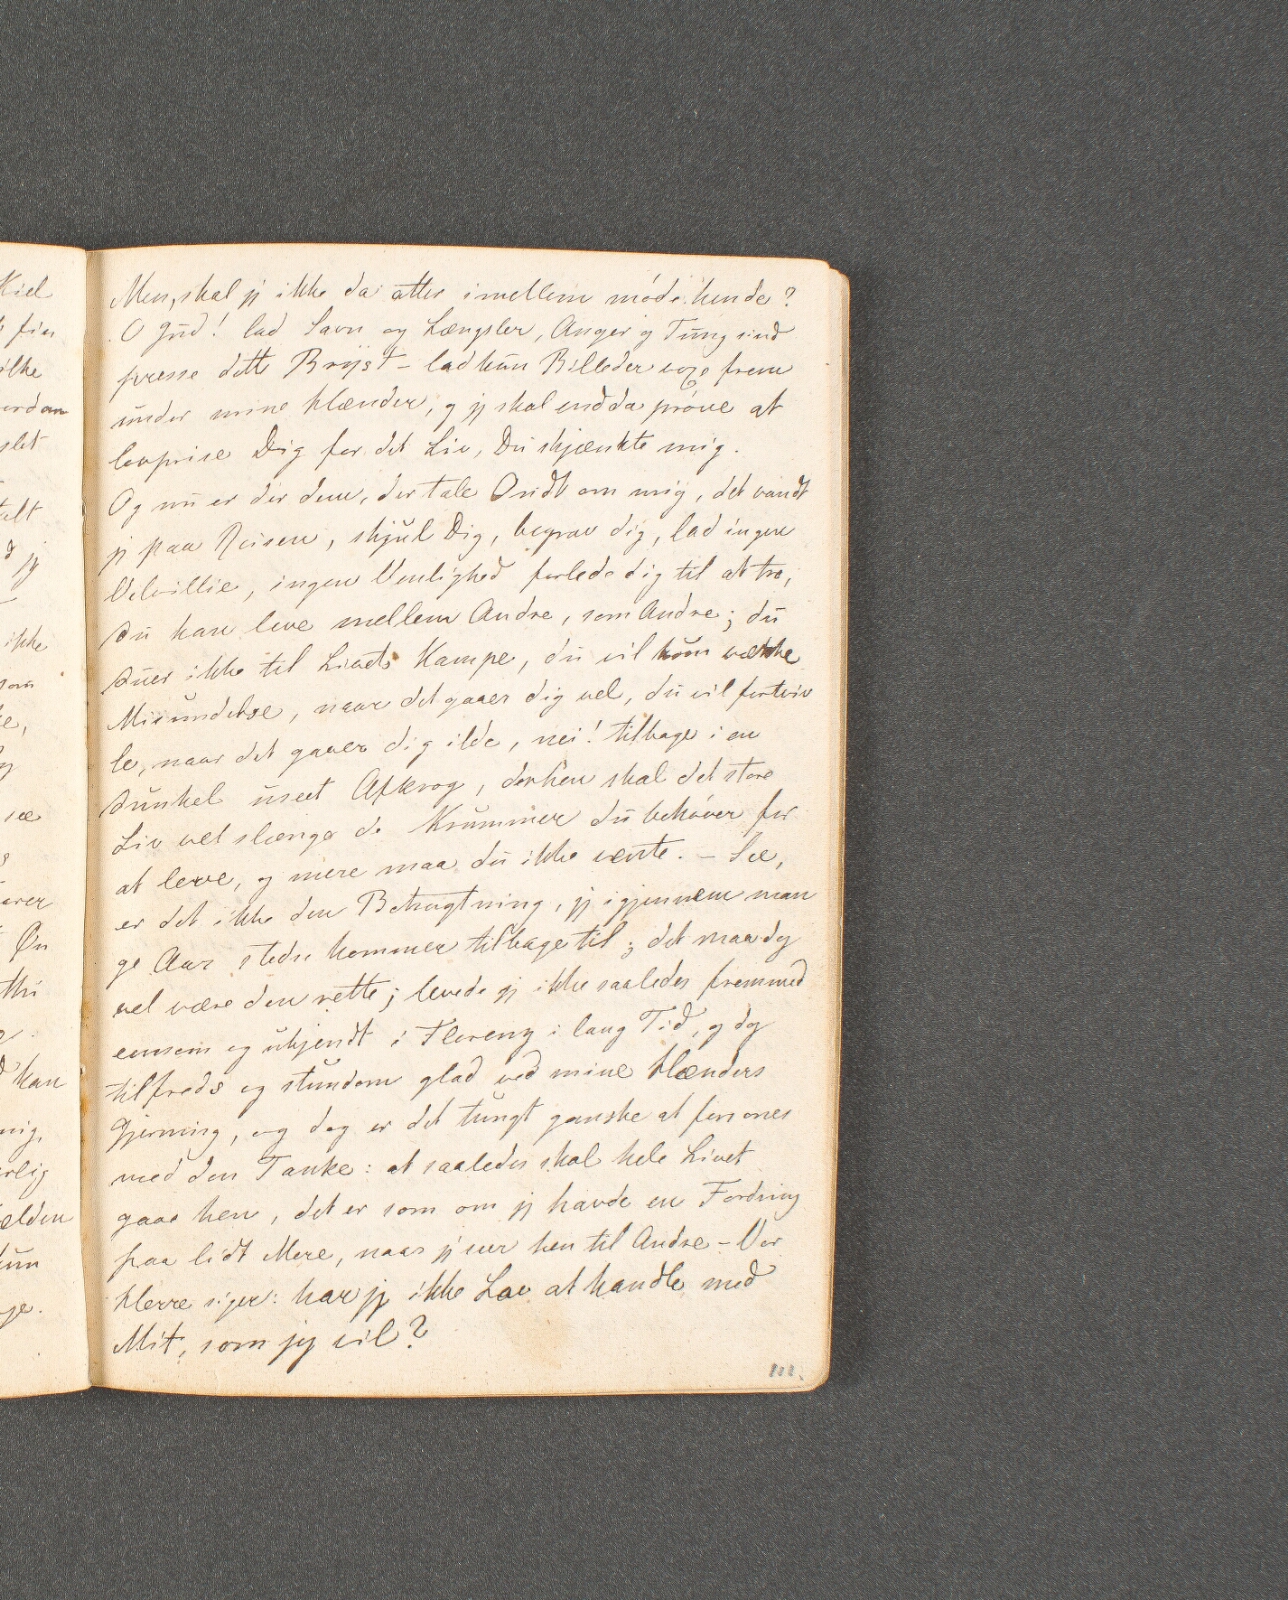 Men, skal jg ikke da atter imellem møde hende?
O Gud! lad Savn og Længsler, Anger og Tungsind
presse dette Bryst – lad kun Billeder voxe frem
under mine Hænder, og jg skal endda prøve at
lovprise Dig for det Liv, Du skjænkte mig.
Og nu er der dem, der tale Ondt om mig, det vandt
jg paa Reisen, skjul Dig, begrav dig, lad ingen
Velvillie, ingen Venlighed forlede dig til at tro,
du kan leve mellem Andre, som Andre; du
duer ikke til Livets Kampe, du vil kun vække
Misundelse, naar det gaaer dig vel, du vil fortviv
le, naar det gaaer dig ilde, nei! tilbage i en
dunkel useet Afkrog, derhen skal det store
Liv vel slænge de Krummer du behøver for
at leve, og mere maa du ikke vente. – See,
er det ikke den Betragtning, jg igjennem man
ge Aar stedse kommer tilbage til; det maa dog
vel være den rette; levede jg ikke saaledes fremmed
eensom og ukjendt i Florenz i lang Tid, og dog
tilfreds og stundom glad ved mine Hænders
Gjerning, og dog er det tungt ganske at forsones
med den Tanke: at saaledes skal hele Livet
gaae hen, det er som om jg havde en Fordring
paa lidt Mere, naar jg seer hen til Andre – Vor
Herre siger: har jg ikke Lov at handle med
Mit, som jeg vil?
Kiel
ikke
slet
ikke
som
see
Øn
thi
kan
mig,
kun